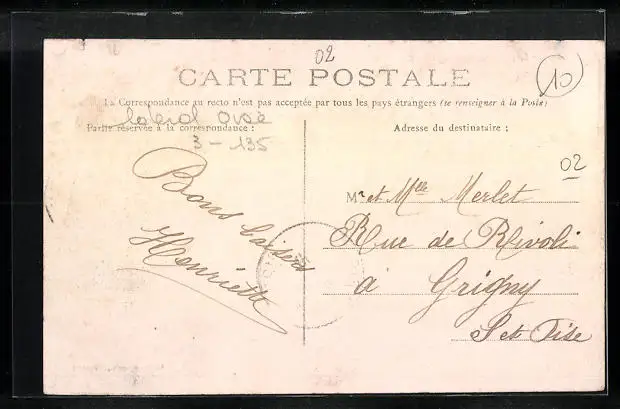 02
CARTE POSTALE
10
La Correspondance au recto n'est pas acceptée par tous les pays étrangers (se renseigner à la Poste)
Partie réservée à la correspondance :
Adresse du destinataire :
3 - 135
02
Bons baisers
Henriette
Mr et Mlle Merlet
Rue de Rivoli
a Grigny
S et Oise